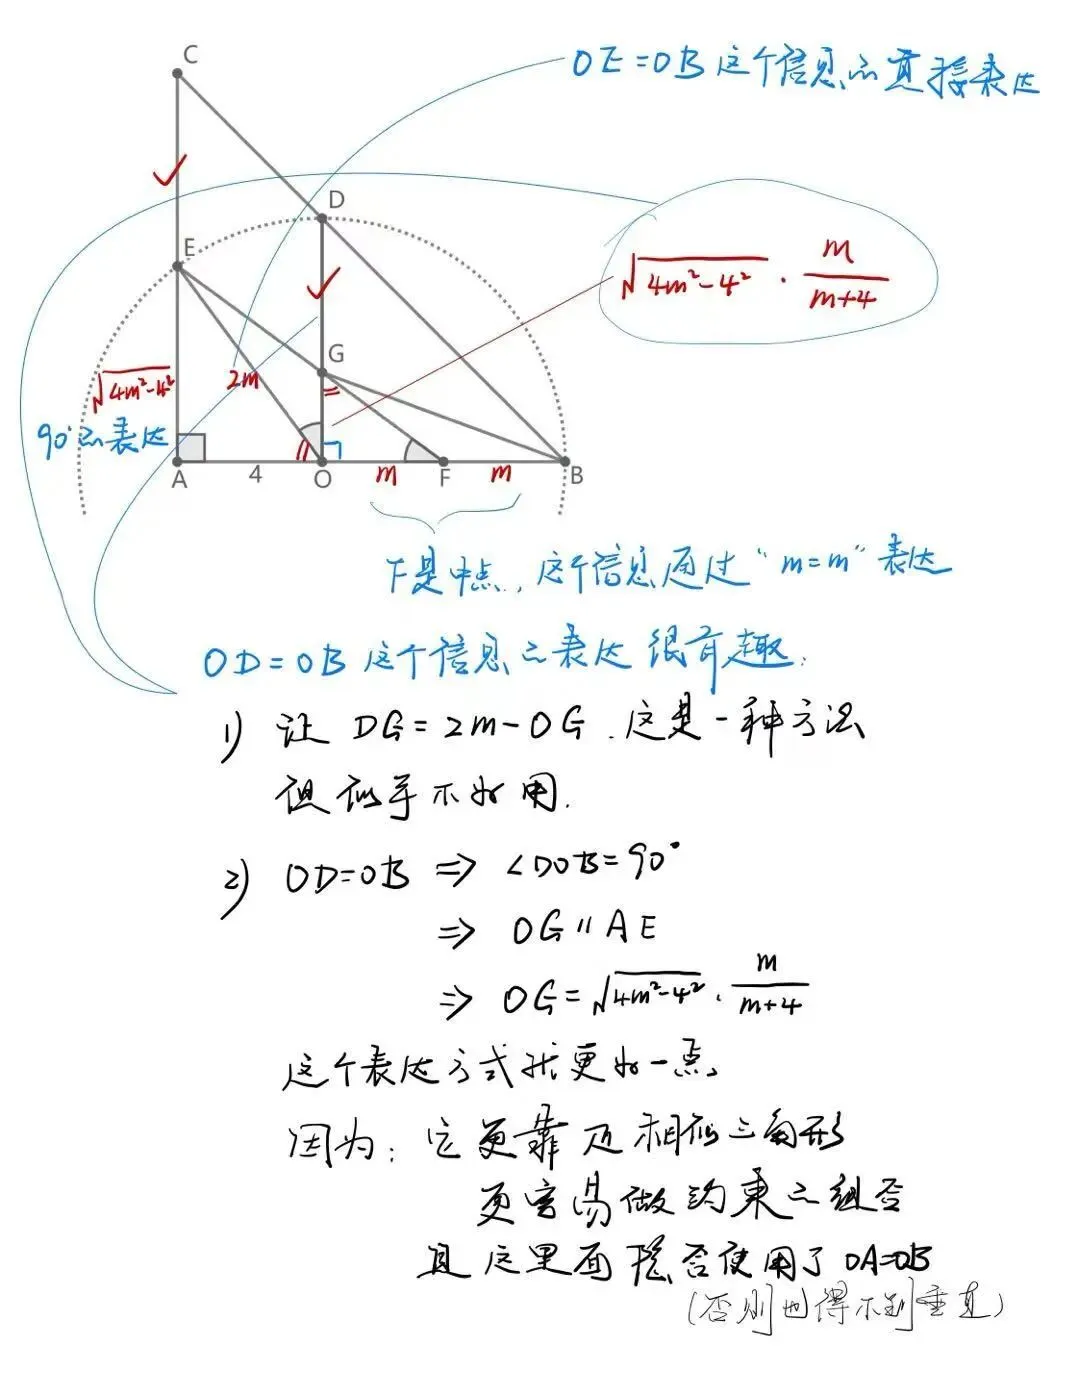 C
OE=OB这个信息的直接表达
D
E
√(4m²-4²) · m/(m+4)
G
√(4m²-4²)
2m
90°的表达
A
4
O
m
F
m
B
F是中点,这个信息通过“m=m”表达
OD=OB这个信息之表达很有趣:
1) 让 DG=2m-OG.这是一种方法
但似乎不好用.
2) OD=OB ⇒ ∠DOB=90°
⇒ OG∥AE
⇒ OG=√(4m²-4²) · m/(m+4)
这个表达方式就更好一点。
因为:它更靠近相似三角形
更容易做约束之组合
且这里面隐含使用了OA=OB
(否则也得不到垂直)